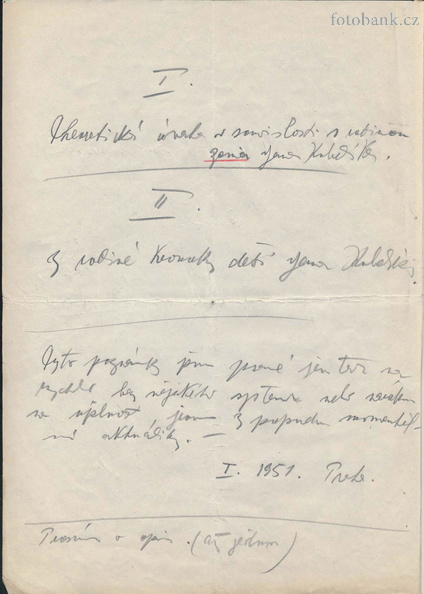 fotobank.cz
I.
Theoretická úvaha v souvislosti s rodinou
pana Jana Kubelíka.
II.
Z rodinné kroniky dětí Jana Kubelíka.
Tyto poznámky jsou psané jen tak na
rychlo bez nějakého systému nebo
na úplnost jsou Z popudu momentál-
ní
I. 1951. Praha.
Prosím o opis. (až jednou)